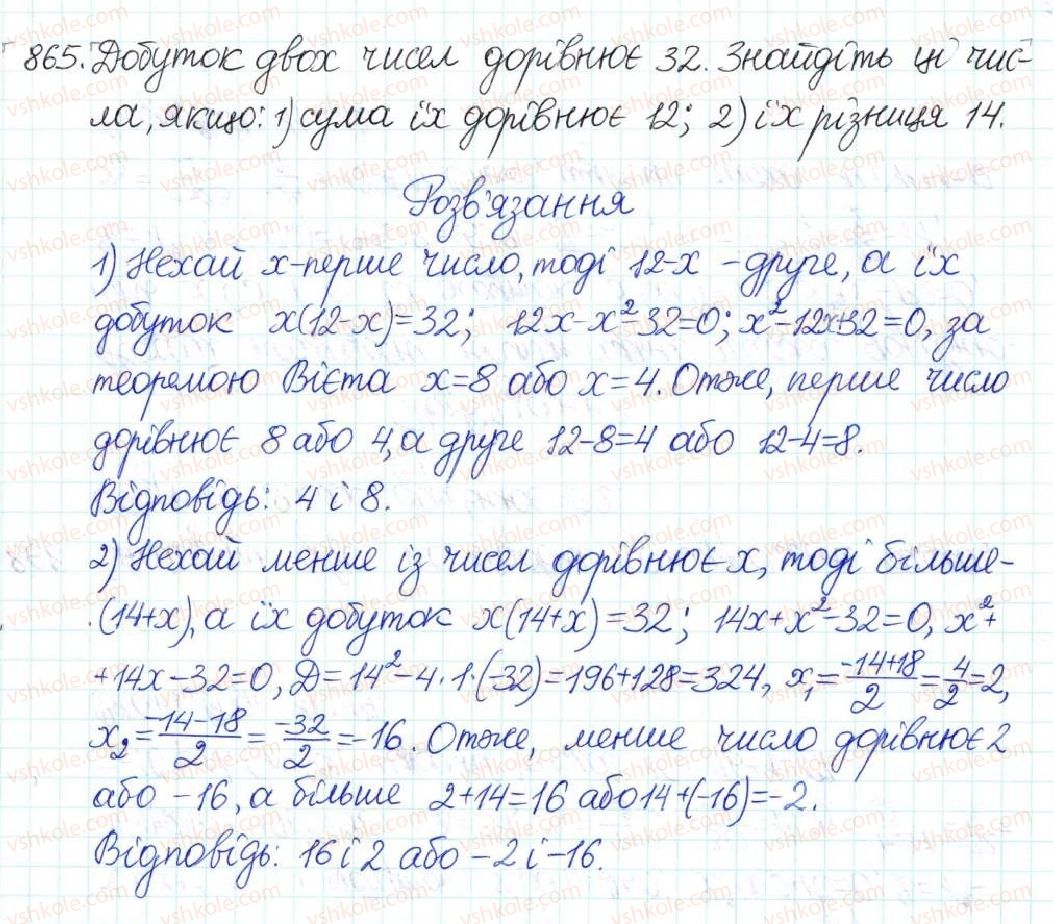 865. Добуток двох чисел дорівнює 32. Знайдіть ці чис-
ла, якщо: 1) сума їх дорівнює 12; 2) їх різниця 14.
Розв'язання
1) Нехай x-перше число, тоді 12-x - друге, а їх
добуток x(12-x)=32; 12x-x²-32=0; x²-12x+32=0, за
теоремою Вієта x=8 або x=4. Отже, перше число
дорівнює 8 або 4, а друге 12-8=4 або 12-4=8.
Відповідь: 4 і 8.
2) Нехай менше із чисел дорівнює x, тоді більше-
(14+x), а їх добуток x(14+x)=32; 14x+x²-32=0, x²+
+14x-32=0, D=14²-4·1·(-32)=196+128=324, x₁=(-14+18)/2=4/2=2,
x₂=(-14-18)/2=-32/2=-16. Отже, менше число дорівнює 2
або -16, а більше 2+14=16 або 14+(-16)=-2.
Відповідь: 16 і 2 або -2 і -16.